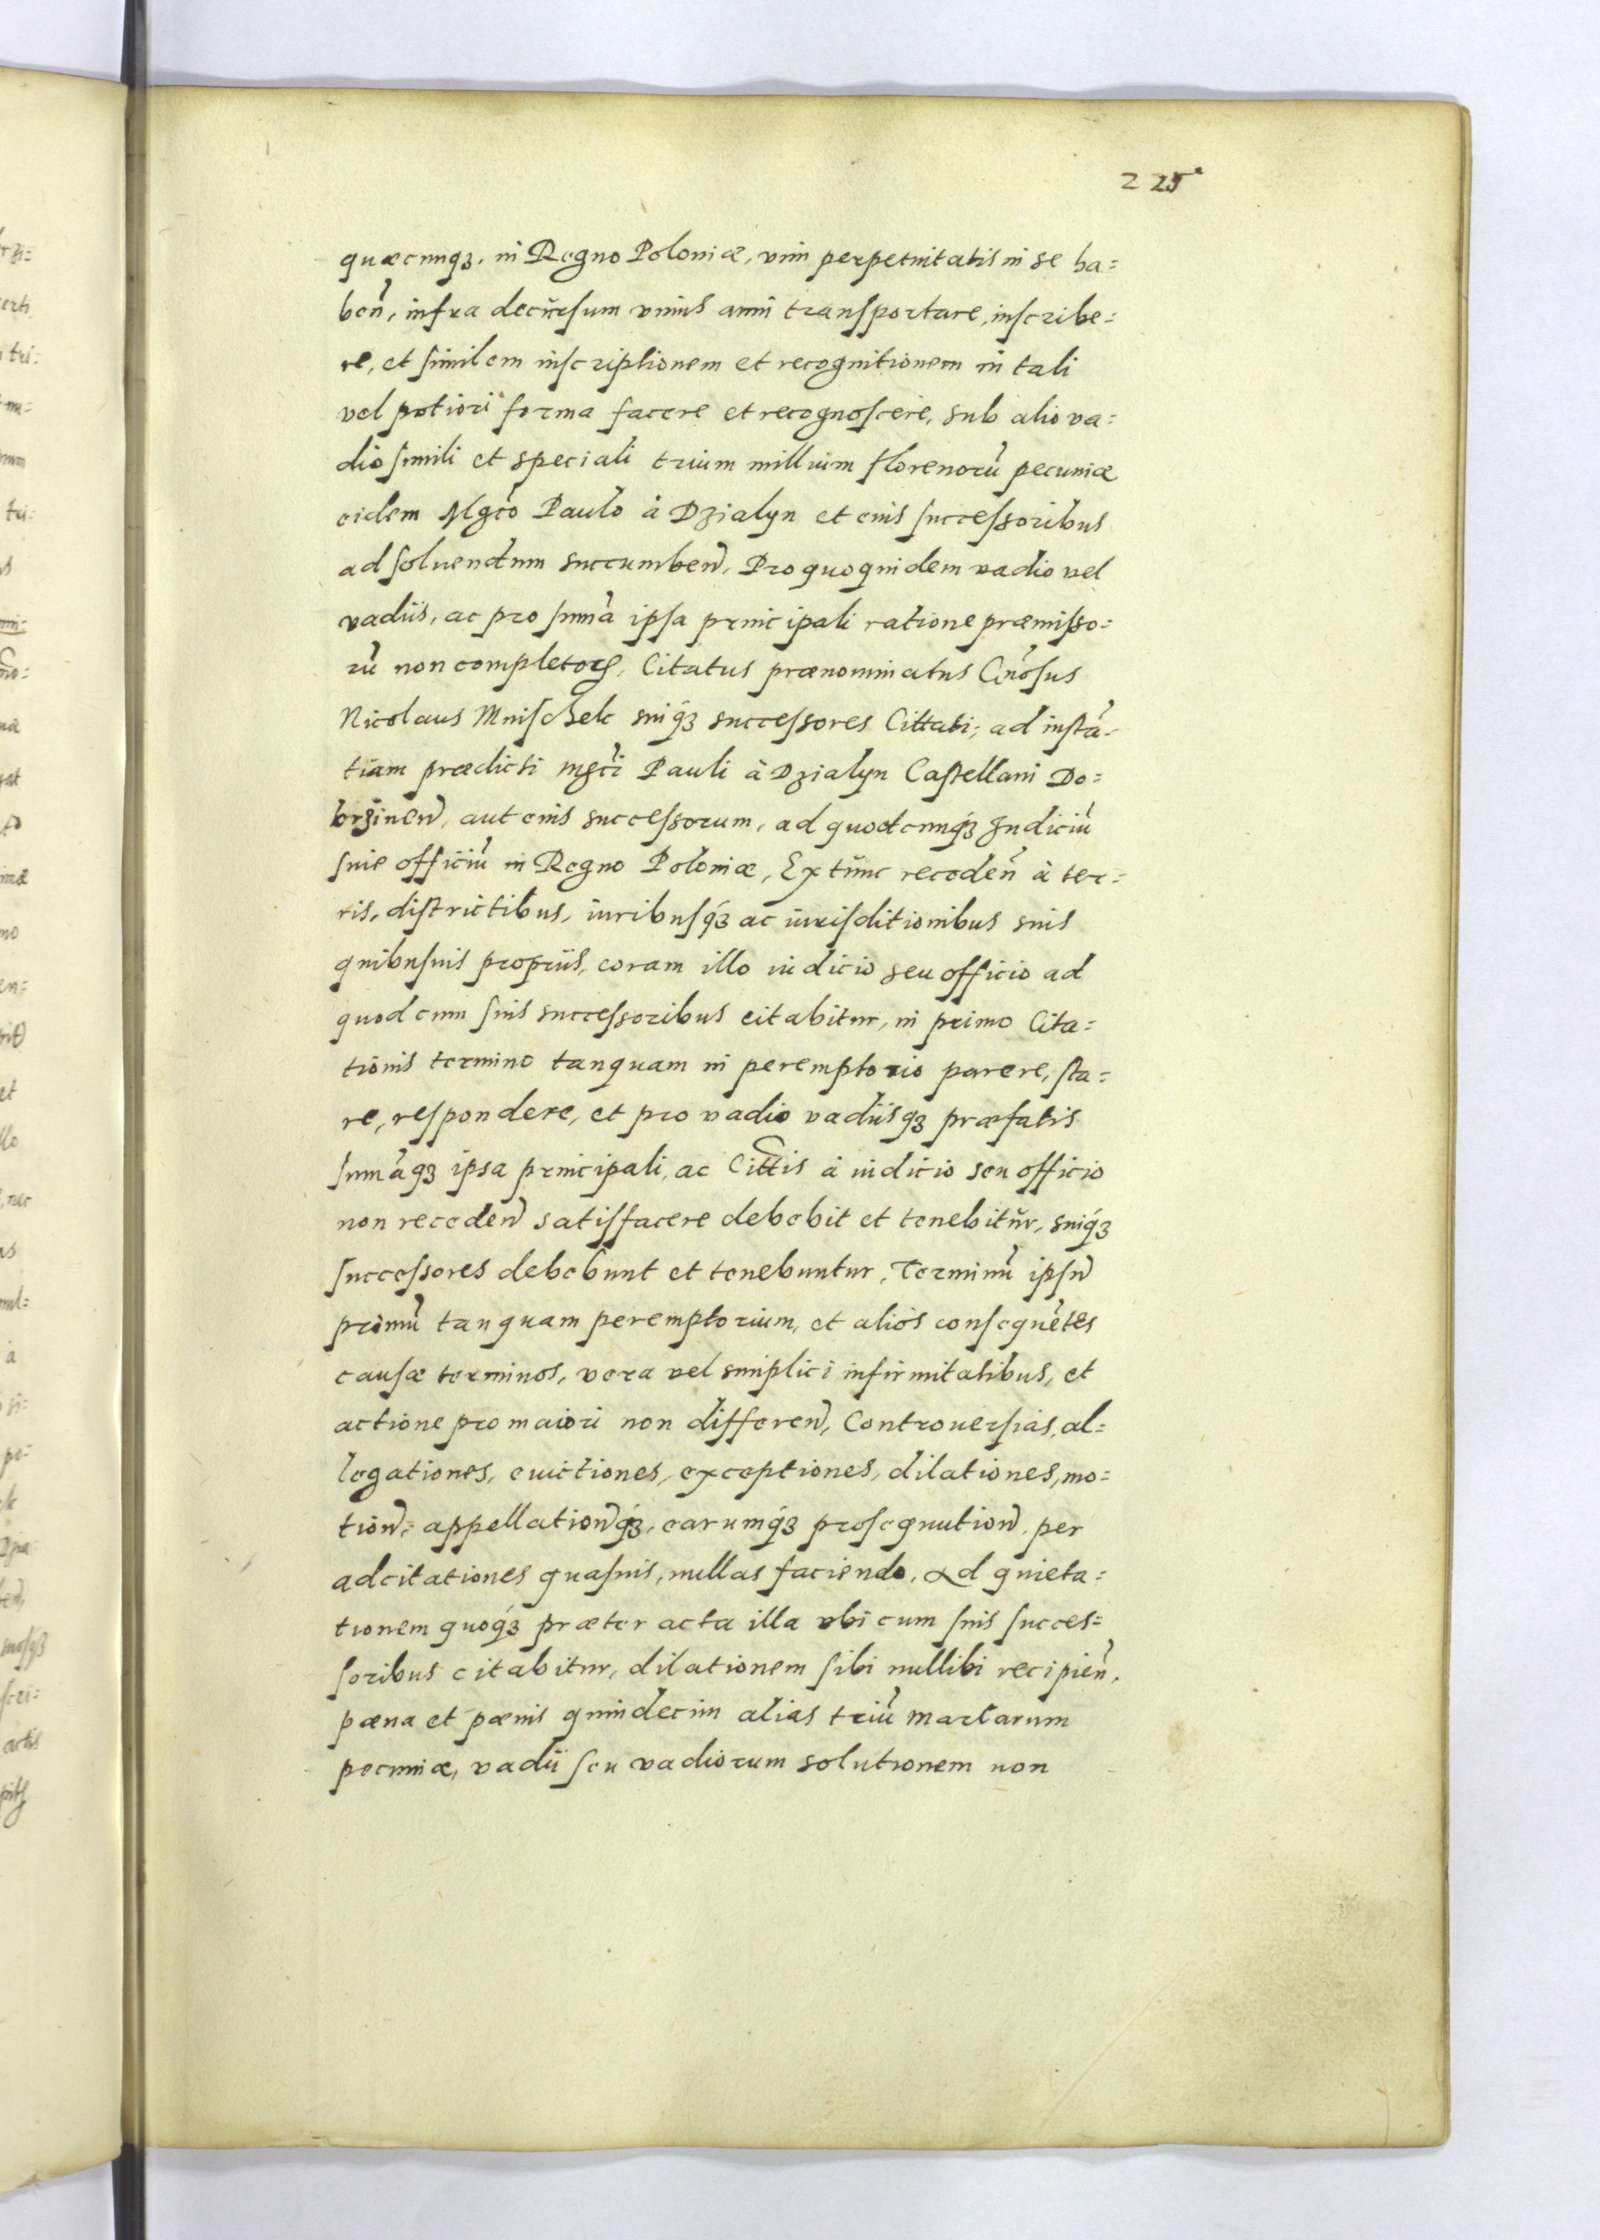 225
quæcunqꝫ, in Regno Poloniæ, vim perpetuitatis in se ha=
ben̄, infra decursum vnius anni transportare, inscribe=
re, et similem inscriptionem et recognitionem in tali
vel potiori forma facere et recognoscere, sub alio va=
dio simili et speciali trium millium florenorū pecuniæ
eidem Mgco Paulo à Dzialyn et eius successoribus
ad soluendum succumben̄. Pro quoquidem vadio vel
vadiis, ac pro summa ipsa principali ratione præmisso=
rū non completorꝝ, Citatus prænominatus Gn̄osus
Nicolaus Mnischek suiqꝫ successores Cittati, ad instā=
tiam prædicti Mgci Pauli à Dzialyn Castellani Do=
brzinen̄, aut eius successorum, ad quodcunqꝫ Iudiciū
siue officiū in Regno Poloniæ, Ex tunc receden̄ à ter=
ris, districtibus, iuribusqꝫ ac iurisditionibus suis
quibusuis propriis, coram illo iudicio seu officio ad
quod cum suis successoribus citabitur, in primo Cita=
tionis termino tanquam in peremptorio parere, sta=
re, respondere, et pro vadio vadiisqꝫ præfatis
sum̄aqꝫ ipsa principali, ac Cittis à iudicio seu officio
non receden̄ satisfacere debebit et tenebitur, suiqꝫ
successores debebunt et tenebuntur. Terminū ipsū
primū tanquam peremptorium, et alios consequētes
causæ terminos, vera vel simplici infirmitatibus, et
actione pro maiori non differen̄, Controuersias, al=
legationes, euictiones, exceptiones, dilationes, mo=
tion̄, appellation̄qꝫ, earumqꝫ prosequution̄ per
adcitationes quasuis, nullas faciendo. Ad quieta=
tionem quoqꝫ præter acta illa vbi cum suis succes=
soribus citabitur, dilationem sibi nullibi recipien̄.
pæna et pænis quindecim alias triū marcarum
pecuniæ, vadii seu vadiorum solutionem non